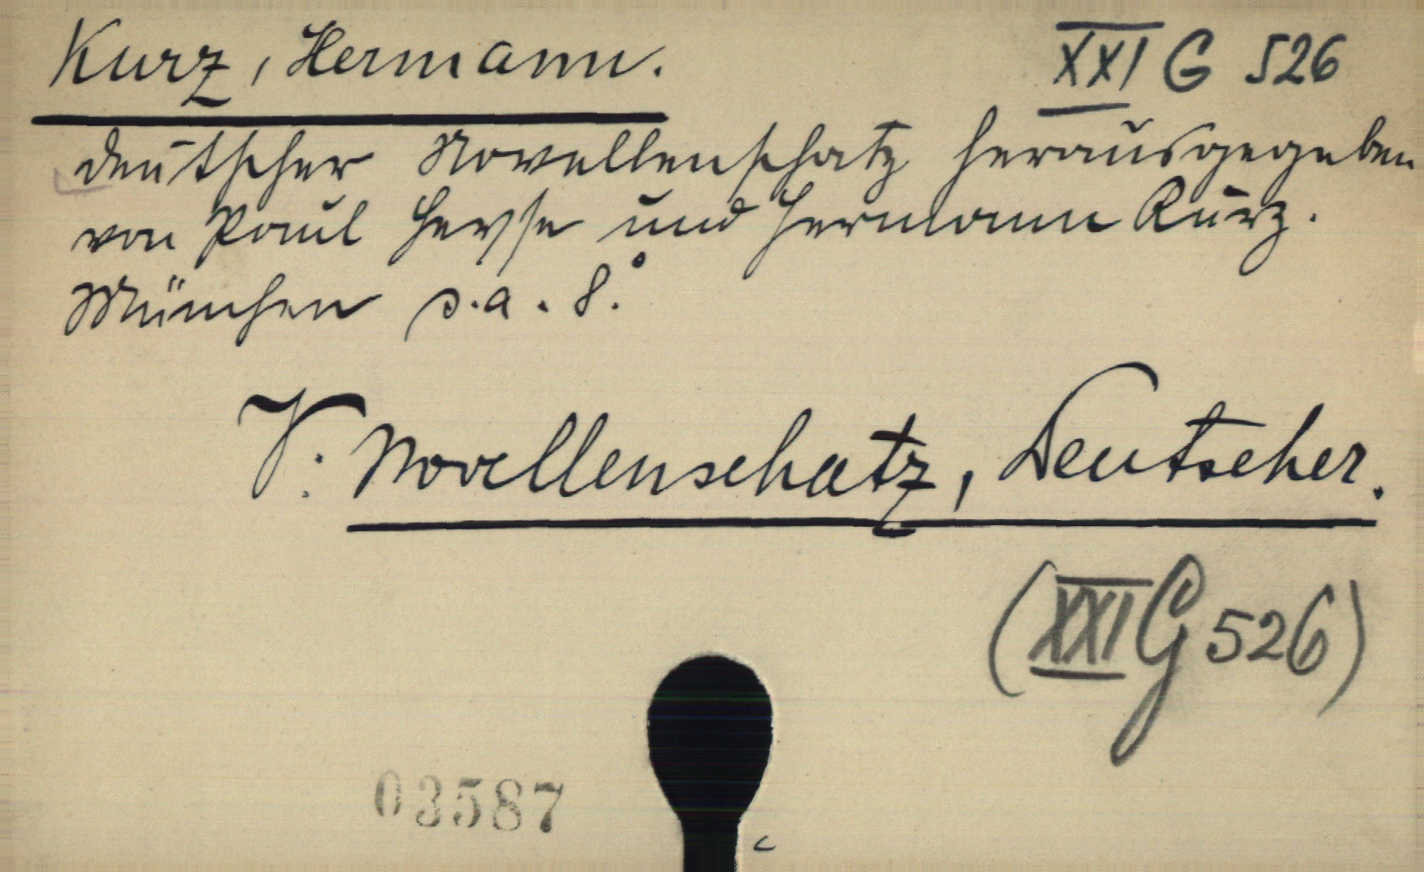 Kurz, Hermann. XXI G 526
deutscher Novellenschatz herausgegeben
von Paul Heyse und Hermann Kurz.
München s.a. 8.°
V: Novellenschatz, Deutscher.
(XXI G 526)
03587
c